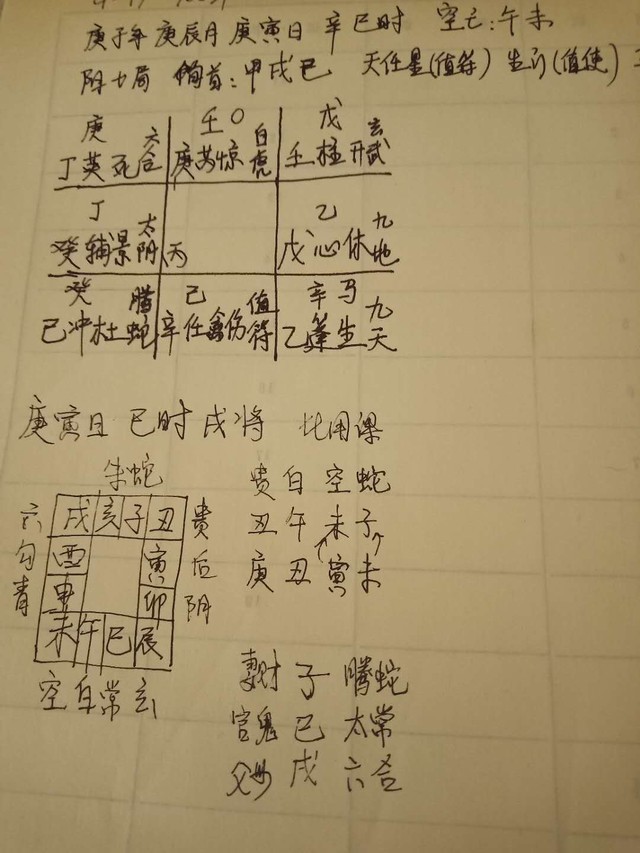 庚子年 庚辰月 庚寅日 辛巳时 空亡:午未
阳七局 旬首:甲戌己 天任星(值符) 生门(值使)
庚 六合 壬O 白虎 戊 玄武
丁英死 庚芮惊 壬柱开
丁 太阴 乙 九地
癸辅景 丙 戊心休
癸 腊蛇 己 值符 辛马 九天
己冲杜 辛任禽伤 乙蓬生
庚寅日 巳时 戌将 比用课
朱蛇 贵白空蛇
六 戌亥子丑 贵 丑午未子
勾 酉 寅 后 庚丑寅未
青 申 卯 阴
未午巳辰
空白常玄
妻财 子 腾蛇
官鬼 巳 太常
父母 戌 六合